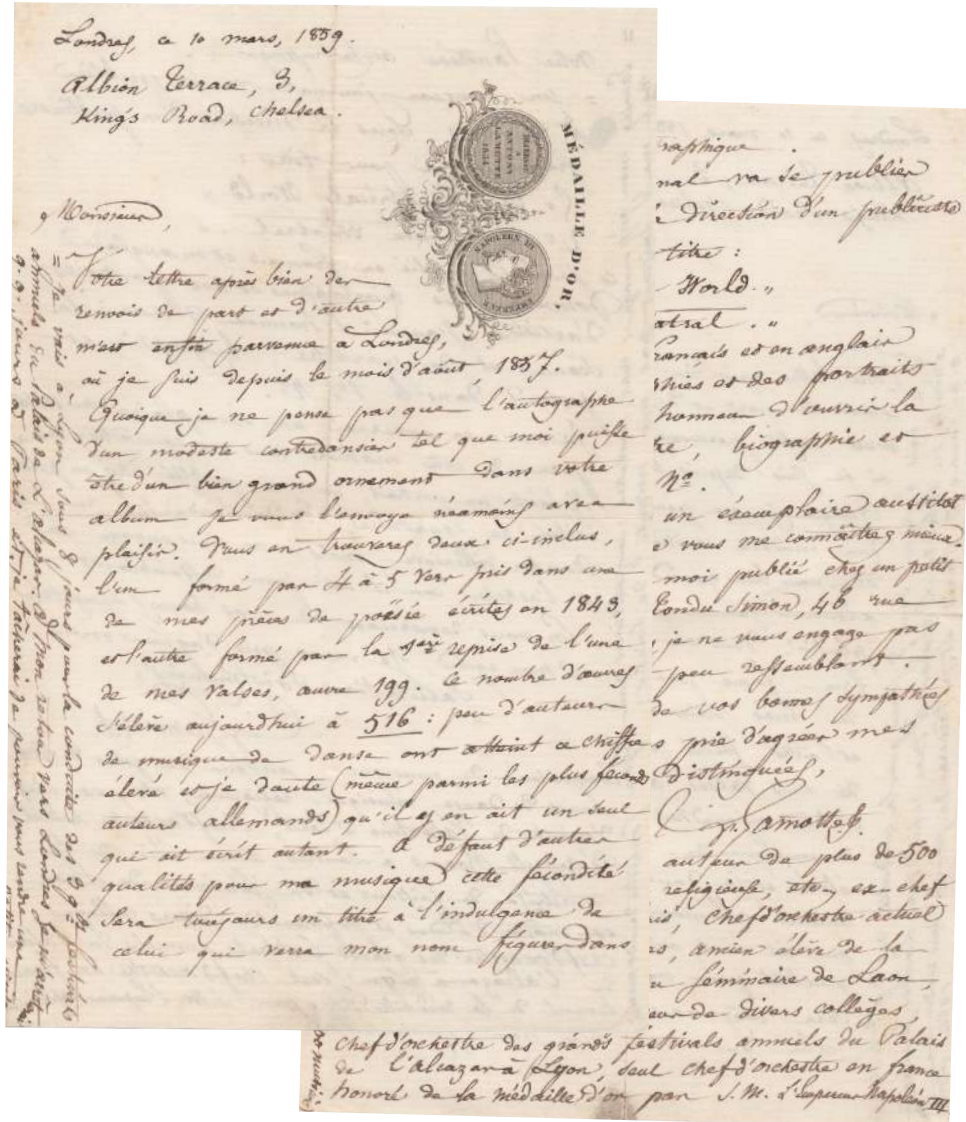 Londres, ce 10 mars, 1859.
Albion Terrace, 3,
King's Road, Chelsea.
MÉDAILLE D'OR,
ANTONY LAMOTTE
NAPOLEON III
EMPEREUR
Monsieur,
Votre lettre après bien des
renvois de part et d'autre
m'est enfin parvenue à Londres,
où je suis depuis le mois d'août, 1857.
Quoique je ne pense pas que l'autographe
d'un modeste contredansier tel que moi puisse
être d'un bien grand ornement dans votre
album je vous l'envoye néamoins avec
plaisir. Vous en trouverez deux ci-inclus,
l'un formé par 4 à 5 vers pris dans une
de mes pièces de poësie écrites en 1843,
et l'autre formé par la 1ère reprise de l'une
de mes valses, œuvre 199. Ce nombre d'œuvres
s'élève aujourdhui à 516 : peu d'auteurs
de musique de danse ont atteint ce chiffre
élevé et je doute (même parmi les plus féconds
auteurs allemands) qu'il y en ait un seul
qui ait écrit autant. A défaut d'autres
qualités pour ma musique, cette fécondité
sera toujours un titre à l'indulgence de
celui qui verra mon nom figurer dans
= Je vais à Lyon sous 8 jours pour la conduite des 3 gds festivals
annuels du Palais de l'Alcazar. A mon retour vers Londres je m'arrête
q.q. jours à Paris et je tâcherai de pouvoir vous rendre une
raphique.
nal va se publier
direction d'un publiciste
titre :
World „
atral. „
français et en anglais
phiés et des portraits
honneur d'ouvrir la
re, biographie et
No.
un éxemplaire aussitôt
e vous me connaîtrez mieux.
moi publié chez un petit
tondu Simon, 46 rue
, je ne vous engage pas
peu ressemblant.
de vos bonnes sympathies
s prie d'agréer mes
Distinguées,
Lamotte
auteur de plus de 500
religieuse, etc, ex-chef
chef d'orchestre actuel
, ancien élève de la
u Séminaire de Laon,
eur de divers collèges,
chef d'orchestre des grands festivals annuels du Palais
de l'Alcazar à Lyon, seul chef d'orchestre en france
honoré de la médaille d'or par S. M. L'Empereur Napoléon III